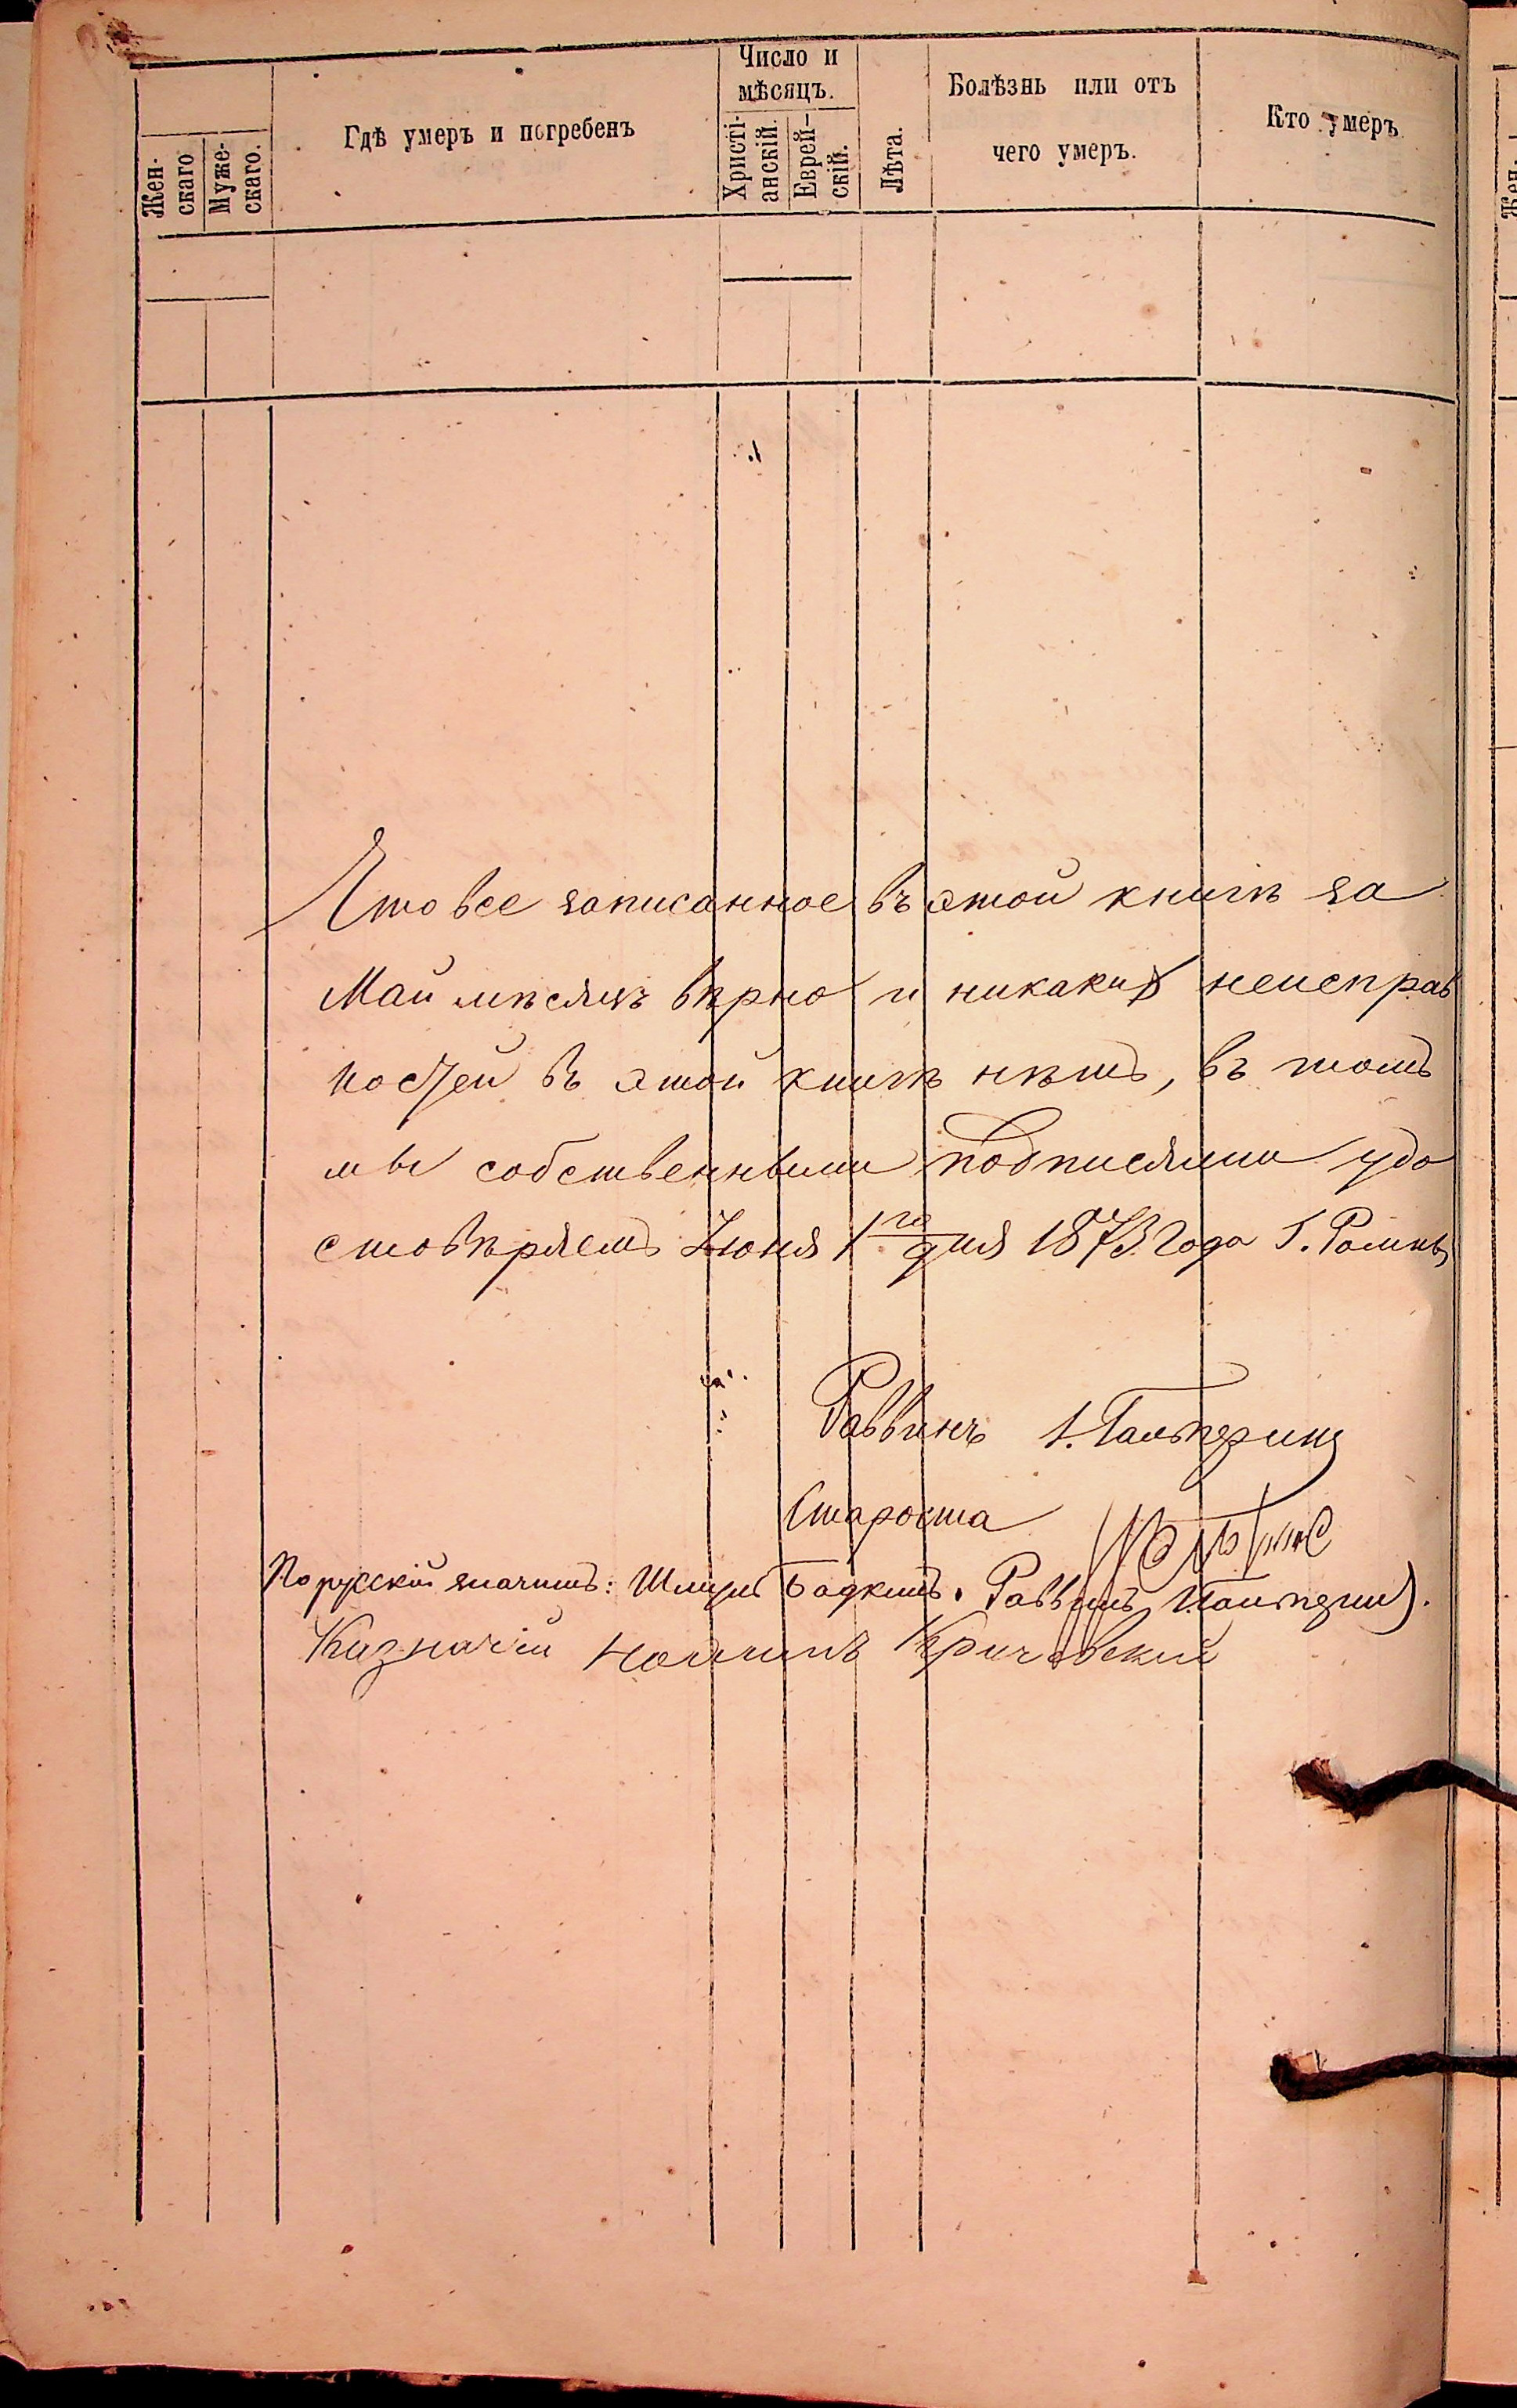 Число и
мѣсяцъ.
Болѣзнь или отъ
чего умеръ.
Кто умеръ
Гдѣ умеръ и погребенъ
Жен-
скаго
Муже-
скаго.
Христі-
анскій.
Еврей-
скій.
Лѣта.
Что все записанное въ этой книгѣ за
Май мѣсяцъ вѣрно и никакихъ неисправ
ностей въ этой книгѣ нѣтъ, въ томъ
мы собственными подписями удо
стовѣряемъ Іюня 1го дня 1873 года Г. Ромны
Раввинъ І. Гальперинъ
Староста
По русскій значитъ: Шмуль Раввинъ Гальперин).
Казначій Кричевскій